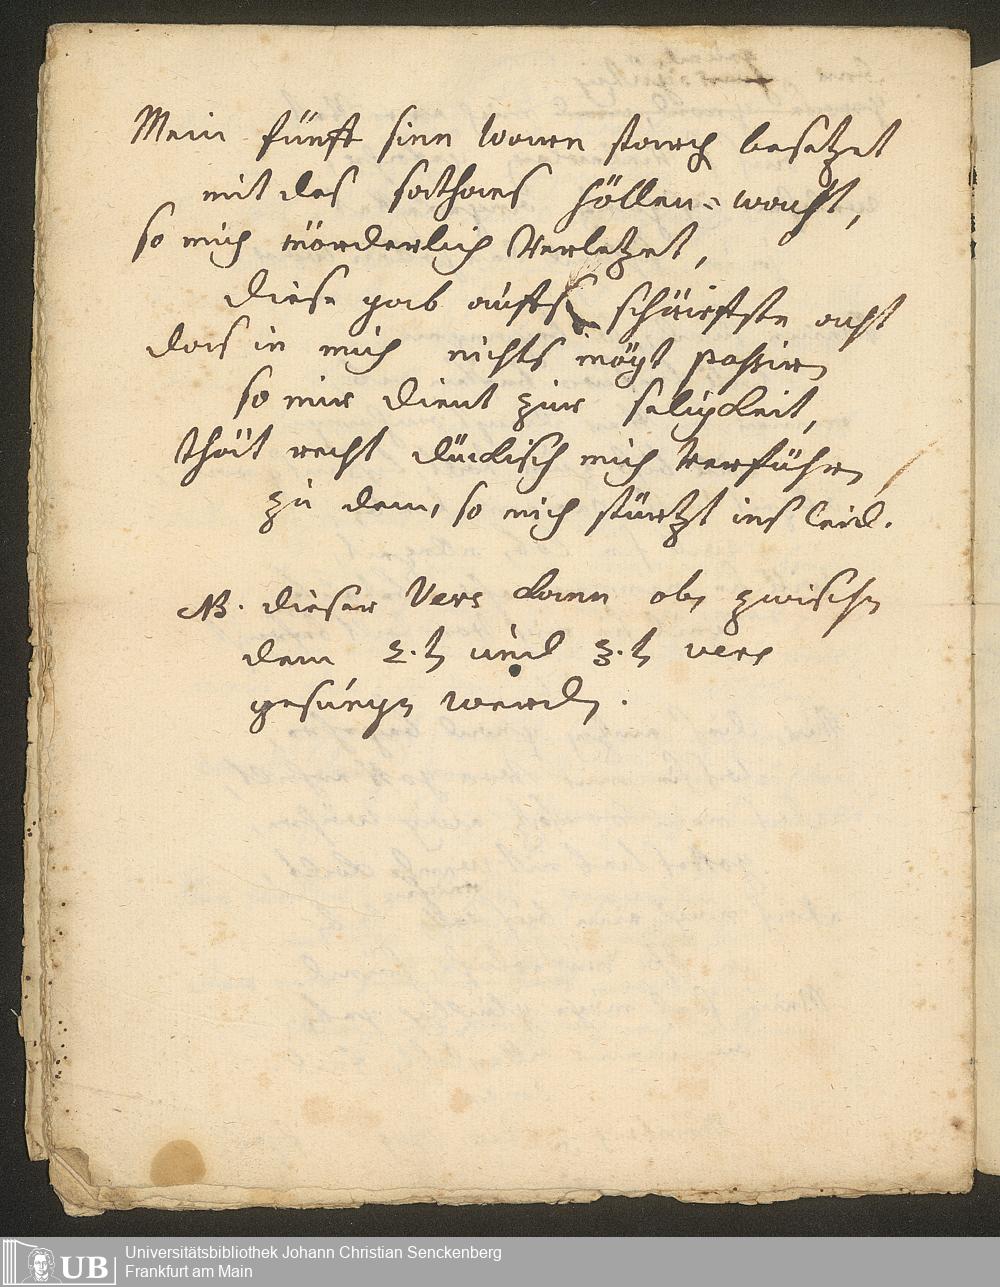 Mein fünff sinn waren starch besetzet
mit des sathans höllen-wacht,
so mich mörderlich Verletzet,
diese gab auffs schärffste acht
das in mich nichts mögt passiren
so mir dient zur seligkeit,
thät recht dückisch mich verführen
zu dem, so mich stürtzt ins leid.
NB. dieser Vers kann oben zwischen
dem 2.t und 3.t vers
gesungen werden.
UB
Universitätsbibliothek Johann Christian Senckenberg
Frankfurt am Main